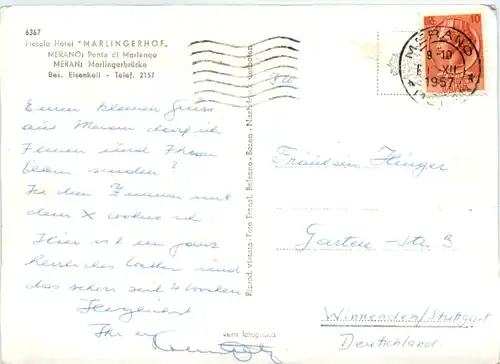 6367
Piccolo Hotel "MARLINGERHOF"
MERANO: Ponte di Marlengo
MERAN: Marlingerbrücke
Bes. Eisenkeil - Telef. 2157
Einen kleinen Gruss
aus Meran darf ich
Ihnen und Ihrem
senden?
In dem Zimmer mit
dem X wohne ich.
Hier ist ein ganz
herrliches Wetter und
das schon seit 4 Wochen
Herzlichst
Ihr
Riprod. vietata - Foto Bolzano - Bozen
vera fotografia
10
MERANO
9-10
XII
1957
Fräulein
Garten-Str. 3
Winnenden/Stuttgart
Deutschland.